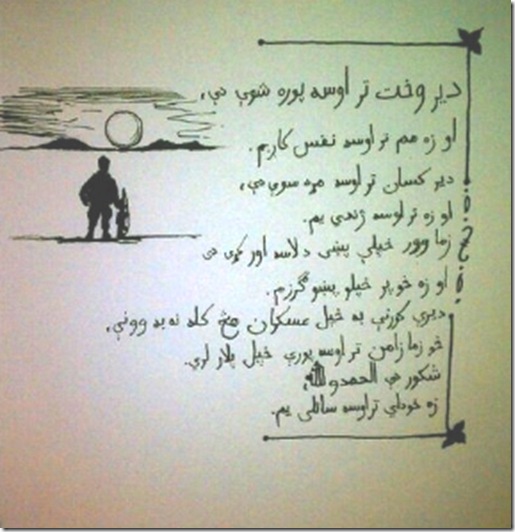 ډیر وخت تر اوسه پوره شوي دي،
او زه هم تر اوسه نفس کاږم.
ډیر کسان تر اوسه مړه سوي دي،
او زه تر اوسه ژندي یم.
زما ورور خپلي پښی د لاسه ورکړی دی
او زه خو پر خپلو پښو ګرزم.
ډیري کورني به خپل عسکران هیڅ کله نه به وویني،
خو زما زامن تر اوسه پوري خپل پلار لري.
شکور دي الحمدوالله،
زه خوداي تر اوسه ساتلی یم.